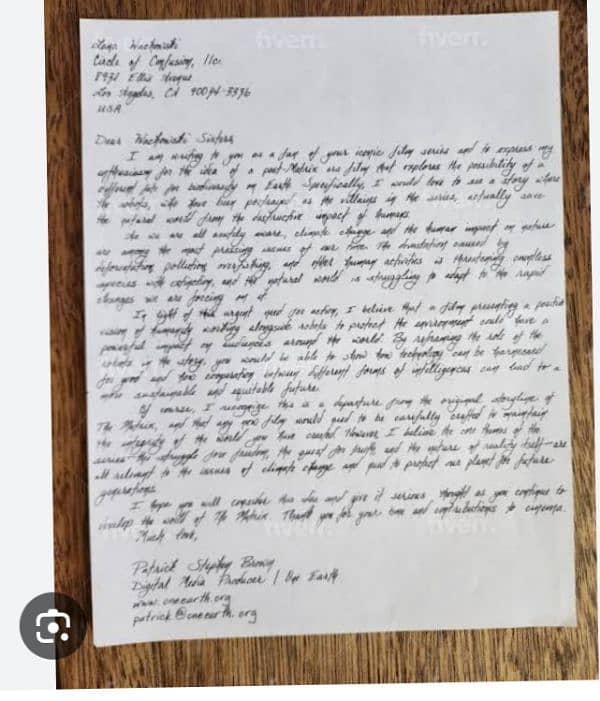 fiverr.
fiverr.
Lana Wachowski
Circle of Confusion, llc.
8931 Ellis Avenue
Los Angeles, CA 90034-3336
USA
Dear Wachowski Sisters,
I am writing to you as a fan of your iconic film series and to express my
enthusiasm for the idea of a post-Matrix era film that explores the possibility of a
different fate for biodiversity on Earth. Specifically, I would love to see a story where
the robots, who have been portrayed as the villains in the series, actually save
the natural world from the destructive impact of humans.
As we are all acutely aware, climate change and the human impact on nature
are among the most pressing issues of our time. The devastation caused by
deforestation, pollution, overfishing, and other human activities is threatening countless
species with extinction, and the natural world is struggling to adapt to the rapid
changes we are forcing on it.
In light of this urgent need for action, I believe that a film presenting a positive
vision of humanity working alongside robots to protect the environment could have a
powerful impact on audiences around the world. By reframing the role of the
robots in the story, you would be able to show how technology can be harnessed
for good and how cooperation between different forms of intelligences can lead to a
more sustainable and equitable future.
Of course, I recognize this is a departure from the original storyline of
The Matrix, and that any new film would need to be carefully crafted to maintain
the integrity of the world you have created. However, I believe the core themes of the
series - the struggle for freedom, the quest for truth, and the nature of reality itself - are
all relevant to the issues of climate change and need to protect our planet for future
generations.
I hope you will consider this idea and give it serious thought as you continue to
develop the world of The Matrix. Thank you for your time and contributions to cinema.
Much love,
Patrick Stephen Brown
Digital Media Producer | One Earth
www.oneearth.org
patrick@oneearth.org